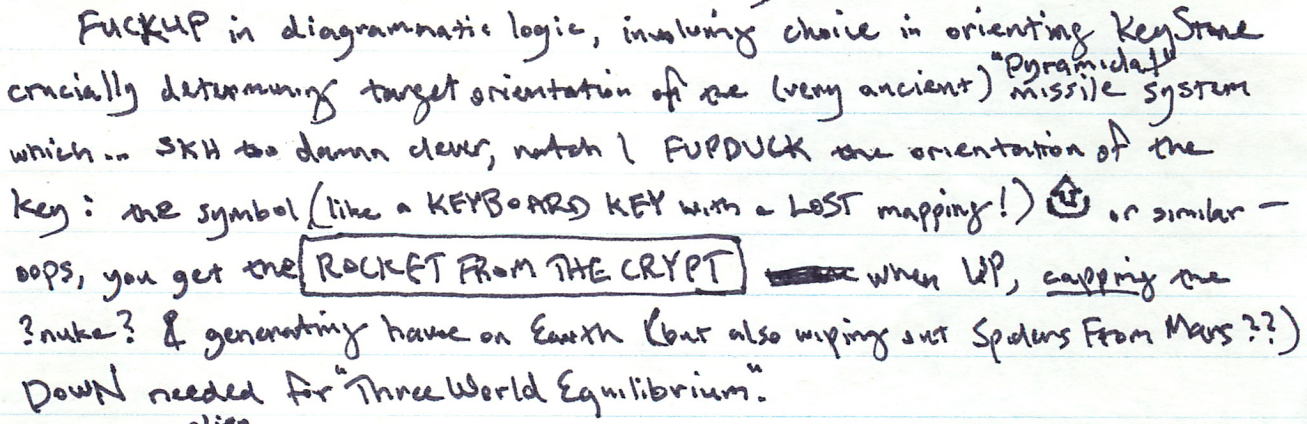 FUCKUP in diagrammatic logic, involving choice in orienting KeyStone
"Pyramidal"
crucially determining target orientation of the (very ancient) missile system
which... SKH too damn clever, natch I FUPDUCK the orientation of the
key: the symbol (like a KEYBOARD KEY with a LOST mapping!) or similar —
oops, you get the ROCKET FROM THE CRYPT when UP, capping the
?nuke? & generating havoc on Earth (but also wiping out Spiders From Mars??)
DOWN needed for "Three World Equilibrium".